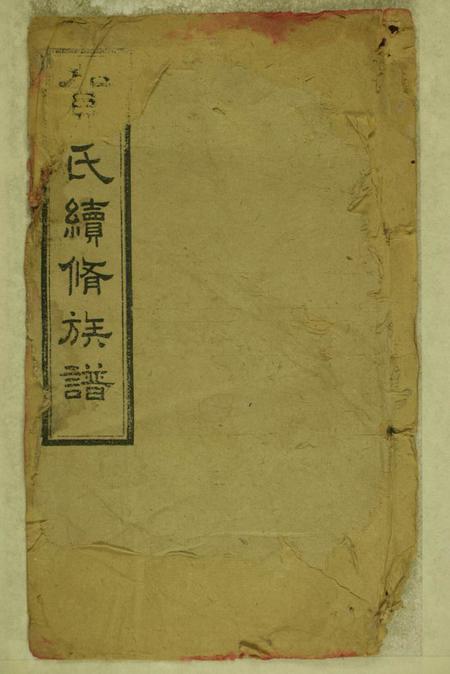 賀氏續脩族譜